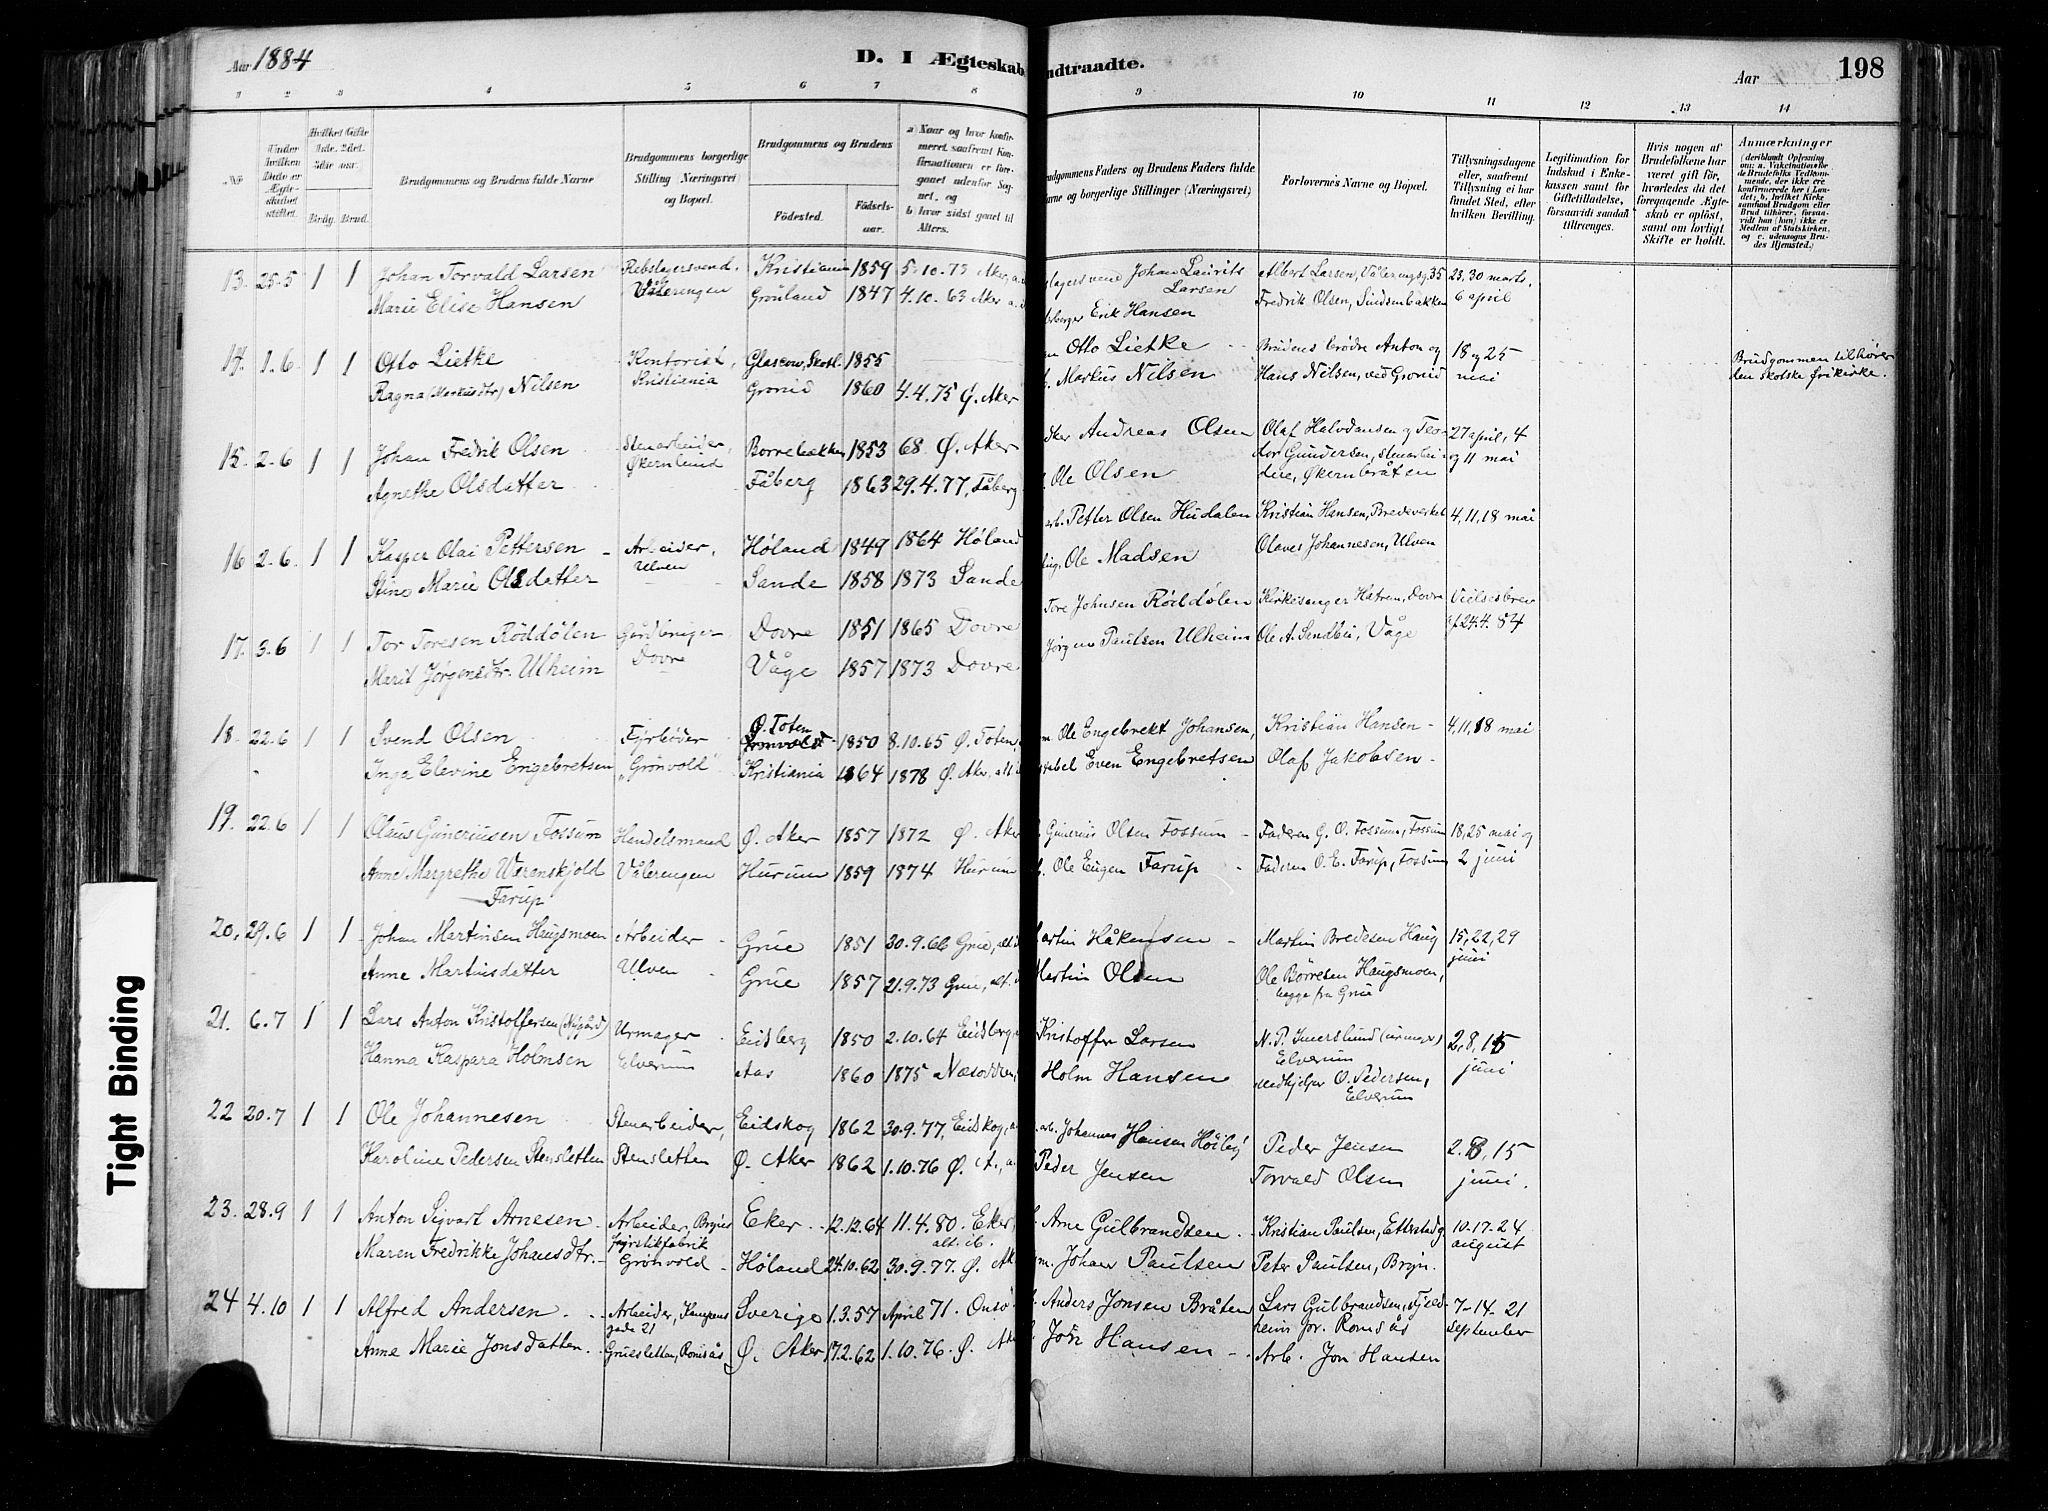 Aar 1884
D. I Ægteskab
ndtraadte.
Aar
198
1 2 3 4 5 6 7 8 9 10 11 12 13 14
No
Under hvilken Dato er Ægteskabet stiftet.
Hvilket Gifte 1ste, 2det, 3die osv.
Brdg. Brud.
Brudgommens og Brudens fulde Navne
Brudgommens borgerlige Stilling (Næringsvei) og Bopæl.
Brudgommens og Brudens
Födested.
Födsels-aar.
a) Naar og hvor konfirmeret, saafremt Konfirmationen er foregaaet udenfor Sognet, og
b) hvor sidst gaaet til Alters.
Brudgommens Faders og Brudens Faders fulde Navne og borgerlige Stillinger (Næringsvei)
Forlovernes Navne og Bopæl.
Tillysningsdagene eller, saafremt Tillysning ei har fundet Sted, efter hvilken Bevilling.
Legitimation for Indskud i Enkekassen samt for Giftetilladelse, forsaavidt saadan tiltrænges.
Hvis nogen af Brudefolkene har været gift för, hvorledes da det foregaaende Ægteskab er oplöst, samt om lovligt Skifte er holdt.
Anmærkninger
13. 25.5 1 1 Johan Torvald Larsen Rebslagersvend. Kristiania 1859 5.10.73 Aker, slagersvend Johan Laurits Larsen Albert Larsen, Vålerengsg. 35 23, 30 marts,
Marie Elise Hansen Vålerengen Grønland 1847 4.10.63 Aker Erik Hansen Fredrik Olsen, Lindsenbakken 6 april
14. 1.6 1 1 Otto Lietke Kontorist, Glascow, Skotl. 1855 Otto Lietke Brudens brødre Anton og 18 og 25 Brudgommen tilhører
Ragna (Markusdtr) Nilsen Kristiania Gronid 1860 4.4.75 Ø. Aker Markus Nilsen Hans Nilsen, ved Gronid mai den skotske frikirke.
15. 2.6 1 1 Johan Fredrik Olsen Stenarbeider, Borrebækken 1853 68 Ø. Aker Andreas Olsen Olaf Halvdansen og Teo- 27 april, 4
dor Gundersen, stenarbei- og 11 mai
Agnethe Olsdatter Økernlund Fåberg 1863 29.4.77, Fåberg Ole Olsen dere, Økernbråten
16 2.6 1 1 Kasper Olai Pettersen Arbeider, Høland 1849 1864 Høland Petter Olsen Hudalen Kristian Hansen, Bredeverket 4, 11, 18 mai
Stine Marie Olsdatter Ulven Sande 1858 1873 Sande Ole Madsen Olaves Johannesen, Ulven
17. 3.6 1 1 Tor Toresen Röddølen Gårdbruger Dovre 1851 1865 Dovre Tore Johnsen Röddølen Kirkesanger Hatrem, Dovre Vielsesbrev
Marit Jørgensdtr. Ulheim Dovre Våge 1857 1873 Dovre Jørgen Paulsen Ulheim Ole A. Sendbu, Våge af 24.4.84
18. 22.6 1 1 Svend Olsen Fyrbøder Ø. Toten 1850 8.10.65 Ø. Toten, Ole Engebrekt Johansen, Kristian Hansen 4, 11, 18 mai
Inga Elevine Engebretsen "Grönvold" Kristiania 1864 1878 Ø. Aker, Even Engebretsen Olaf Jakobsen
19. 22.6 1 1 Olaus Guneriusen Fossum Handelsmand Ø. Aker 1857 1872 Ø. Aker Gunerius Olsen Fossum Faderen G. O. Fossum, Fossum 18, 25 mai og
Anne Margrethe Werenskjold Vålerengen Hurum 1859 1874 Hurum Ole Eugen Farup Faderen O. E. Farup, Fossum 2 juni
Farup
20, 29.6 1 1 Johan Martinsen Haugsmoen Arbeider Grue 1851 30.9.66 Grue, Martin Håkensen Martin Bredesen Haug 15, 22, 29
Anne Martinsdatter Ulven Grue 1857 21.9.73 Grue, Martin Olsen Ole Børresen Haugsmoen, juni
begge fra Grue
21. 6.7 1 1 Lars Anton Kristoffersen (Nygård) Urmager Eidsberg 1850 2.10.64 Eidsberg, Kristoffer Larsen N. P. Imerslund (urmager) 2, 8, 15
Elverum
Hanna Kaspara Holmsen Elverum Aas 1860 1875 Næsodden, Holm Hansen Medhjelper O. Pedersen, juni
Elverum
22 20.7 1 1 Ole Johannesen Stenarbeider, Eidskog 1862 30.9.77, Eidskog, Johannes Hansen Höiby Peder Jensen 2. 8, 15
Karoline Pedersen Stensletten Stensletten Ø. Aker 1862 1.10.76 Ø. A., Peder Jensen Torvald Olsen juni.
23. 28.9 1 1 Anton Sigvart Arnesen Arbeider, Bryns Eker 12.12.64 11.4.80. Eker, Arne Gulbrandsen Kristian Paulsen, Etterstadg. 10.17.24
fyrstikfabrik alt. ib. august
Maren Fredrikke Johansdtr. Grönvold Høland 24.10.62 30.9.77. Ø. Ak Johan Paulsen Peter Paulsen, Bryn.
24 4.10 1 1 Alfred Andersen Arbeider, Kampens Sverige 1.3.57 April 71. Onsö Anders Jonsen Bråten Lars Gulbrandsen, Fjeld- 7-14.21
gade 21 heim pr. Romsås september
Anne Marie Jonsdatter Gruesletten, Romsås Ø. Aker 17.2.62 1.10.76. Ø. Aker Jon Hansen Arb. Jon Hansen
Tight Binding